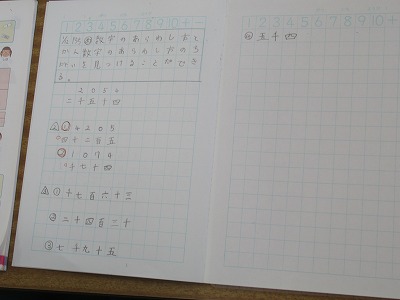 1 2 3 4 5 6 7 8 9 10 + −
数字のあらわし方と
かん数字のあらわし方のち
がいを見つけることができ
る。
2 0 5 4
二千五十四
① 4 2 0 5
四千二百五
② 1 0 7 4
千七十四
① 千七百六十三
② 二千四百三十
③ 七千九十五
1 2 3 4 5 6 7 8 9 10 +
④ 五千四